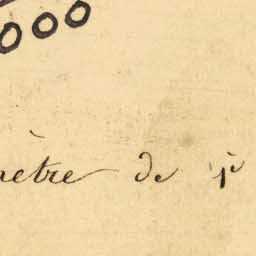 000
nètre de